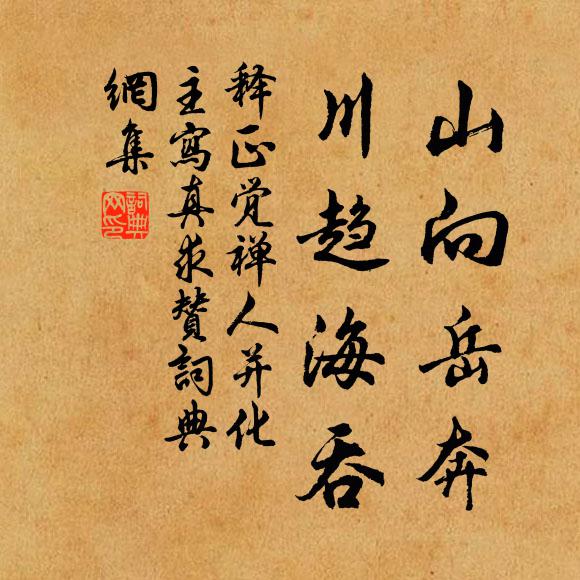 山向岳奔
川趋海吞
释正觉禅人并化
主寫真求贊詞典
網集
詞典
网印